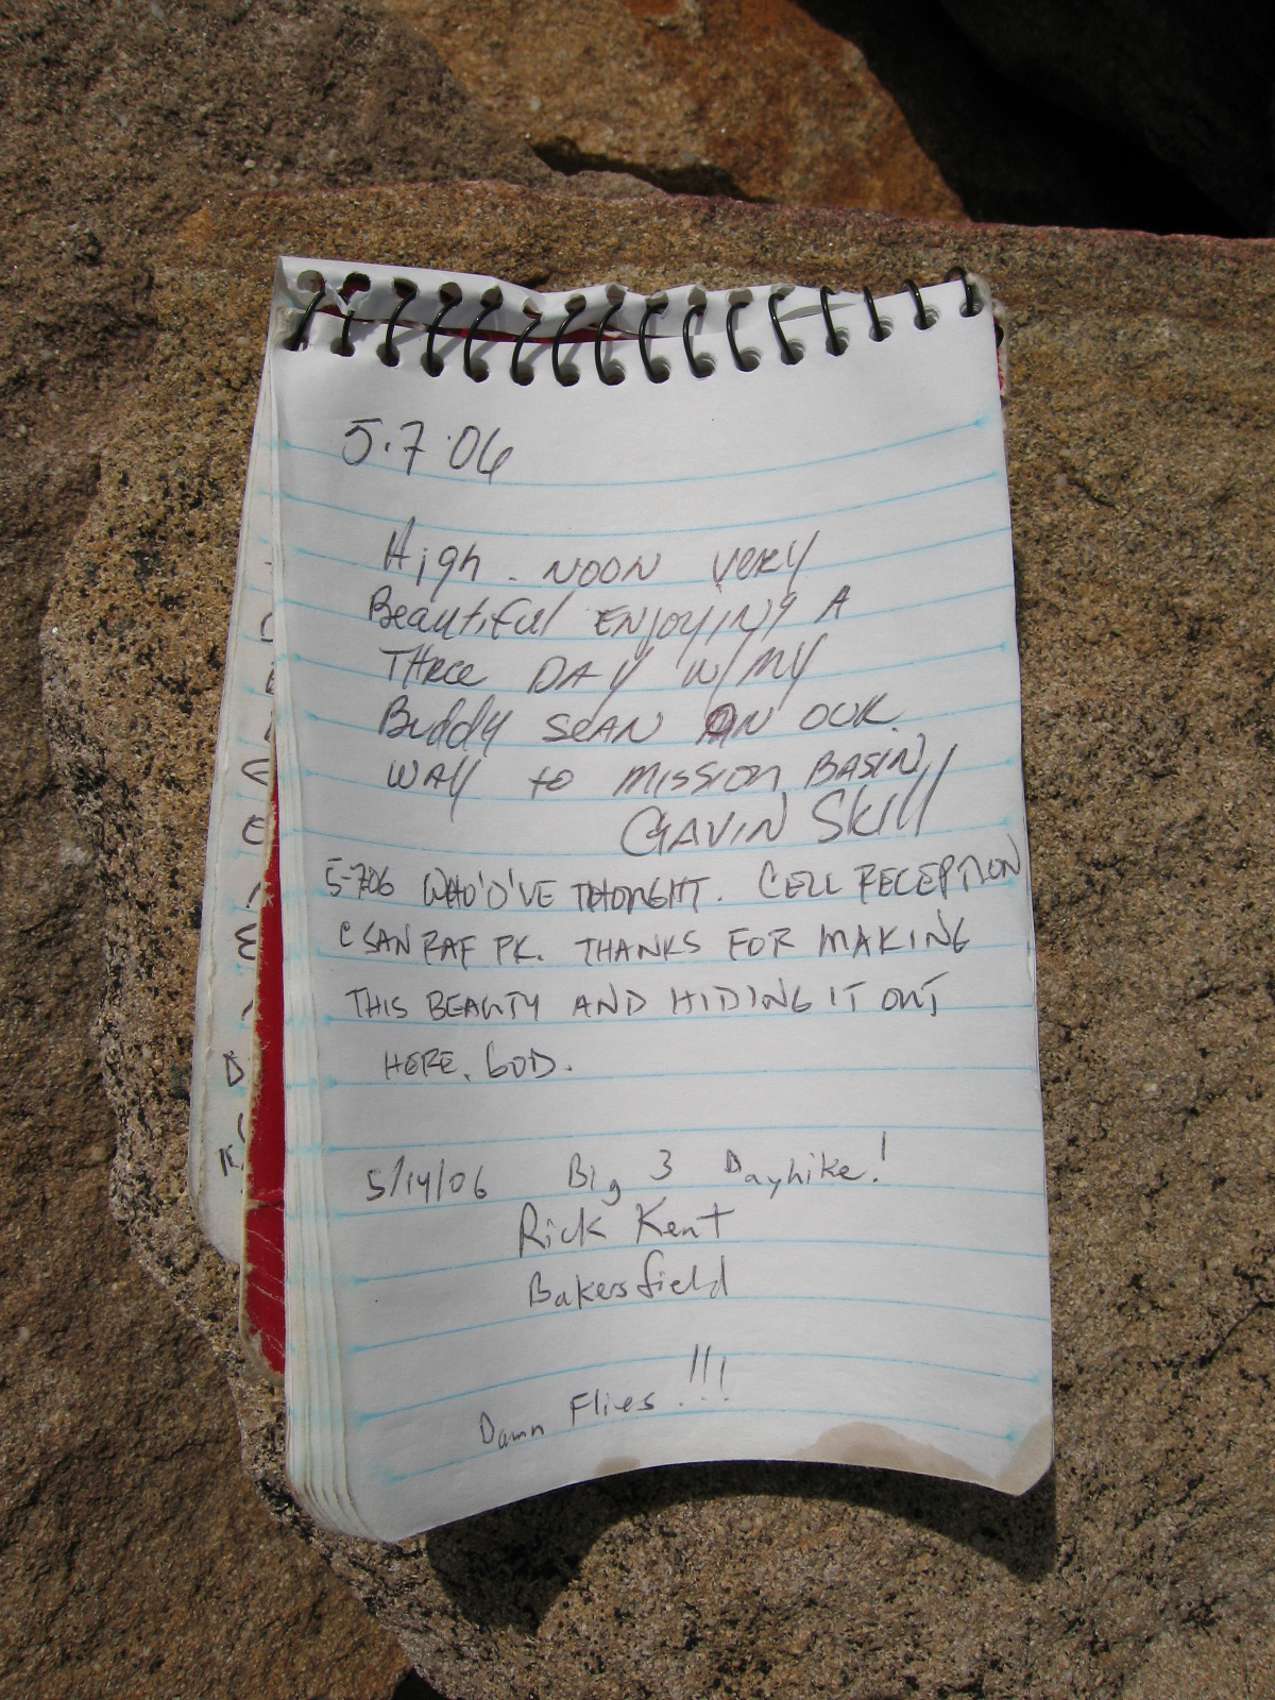 5.7.06
High noon very
Beautiful ENJOYING A
THree DAY w/ MY
Buddy SeAN ON OUR
WAY to MISSION BASIN
GAVIN Skill
5-7-06 WHO'D'VE THOUGHT. CELL RECEPTION
@ SAN RAF PK. THANKS FOR MAKING
THIS BEAUTY AND HIDING IT OUT
HERE, GOD.
5/14/06 Big 3 Dayhike!
Rick Kent
Bakersfield
Damn Flies!!!